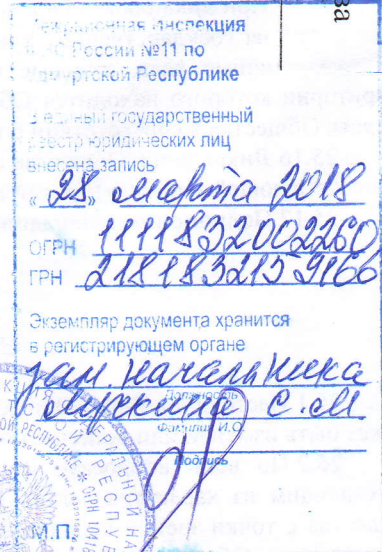 Межрайонная инспекция
ФНС России №11 по
Удмуртской Республике
В единый государственный
реестр юридических лиц
внесена запись
«28» марта 2018
ОГРН 1111832002260
ГРН 2181832159166
Экземпляр документа хранится
в регистрирующем органе
зам. начальника
Должность
Лучкина С.М.
Фамилия И.О.
Подпись
М.П.